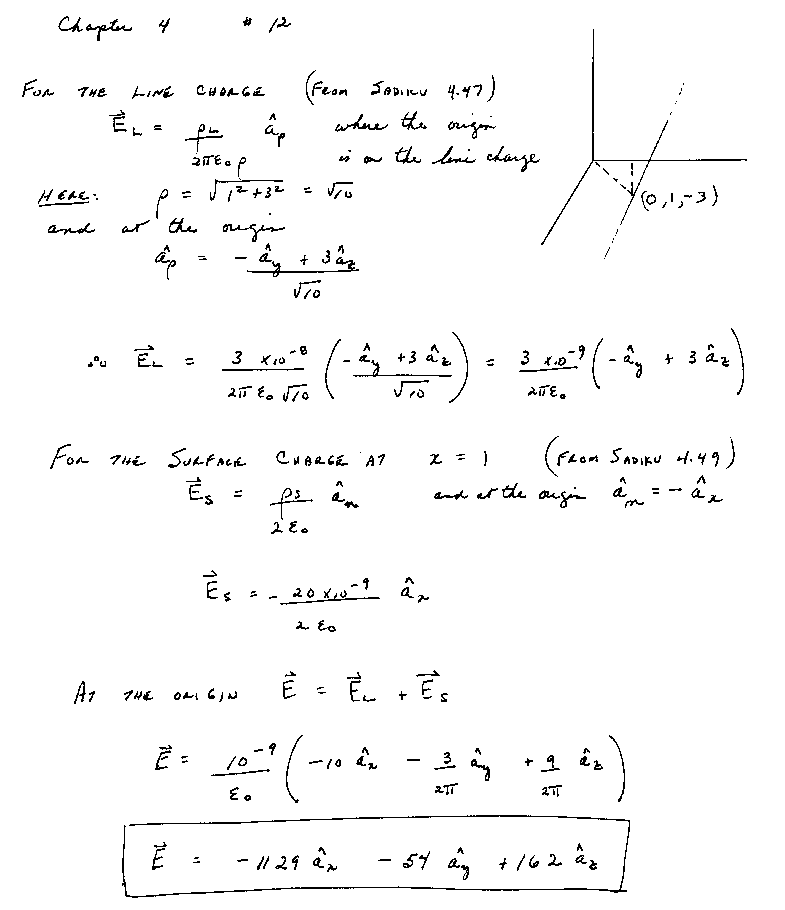 Chapter 4 # 12
FOR THE LINE CHARGE (FROM SADIKU 4.47)
E⃗_L = ρ_L / 2πε₀ρ â_ρ where the origin
is on the line charge
HERE: ρ = √(1² + 3²) = √10
(0,1,-3)
and at the origin
â_ρ = (-â_y + 3â_z) / √10
∴ E⃗_L = 3 ×10⁻⁸ / 2πε₀√10 ((-â_y + 3â_z) / √10) = 3 ×10⁻⁹ / 2πε₀ (-â_y + 3â_z)
FOR THE SURFACE CHARGE AT x = 1 (FROM SADIKU 4.49)
E⃗_s = ρs / 2ε₀ â_n and at the origin â_n = -â_x
E⃗_s = - 20 ×10⁻⁹ / 2ε₀ â_x
AT THE ORIGIN E⃗ = E⃗_L + E⃗_s
E⃗ = 10⁻⁹ / ε₀ (-10 â_x - 3/2π â_y + 9/2π â_z)
E⃗ = -1129 â_x - 54 â_y + 162 â_z